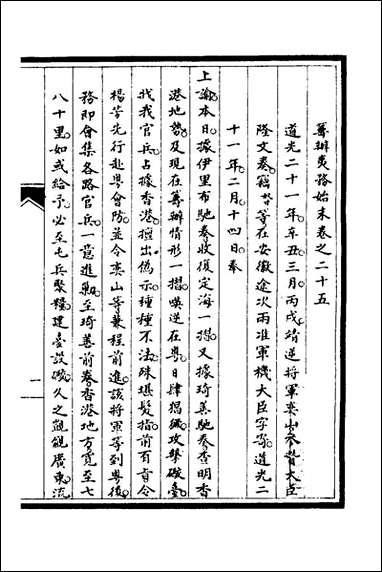 籌辦夷務始末卷之二十五
道光二十一年辛丑三月丙戌靖逆將軍奕山參贊大臣
隆文奏竊等在安徽途次兩准軍機大臣字寄道光二
十一年二月十四日奉
上諭本日據伊里布馳奏收復定海一摺又據琦善馳奏查明香
港地勢及現在籌辦情形一摺嘆逆在粵日肆猖獗攻擊礮臺
戕我官兵占據香港擅出偽示種種不法殊堪髮指前有旨令
楊芳先行赴粵會防並令奕山等兼程前進該將軍等到粵後
務即會集各路官兵一意進剿至琦善前奏香港地方寬至七
八十里如或給予必至屯兵聚糧建臺設礮久之覬覦廣東流
一